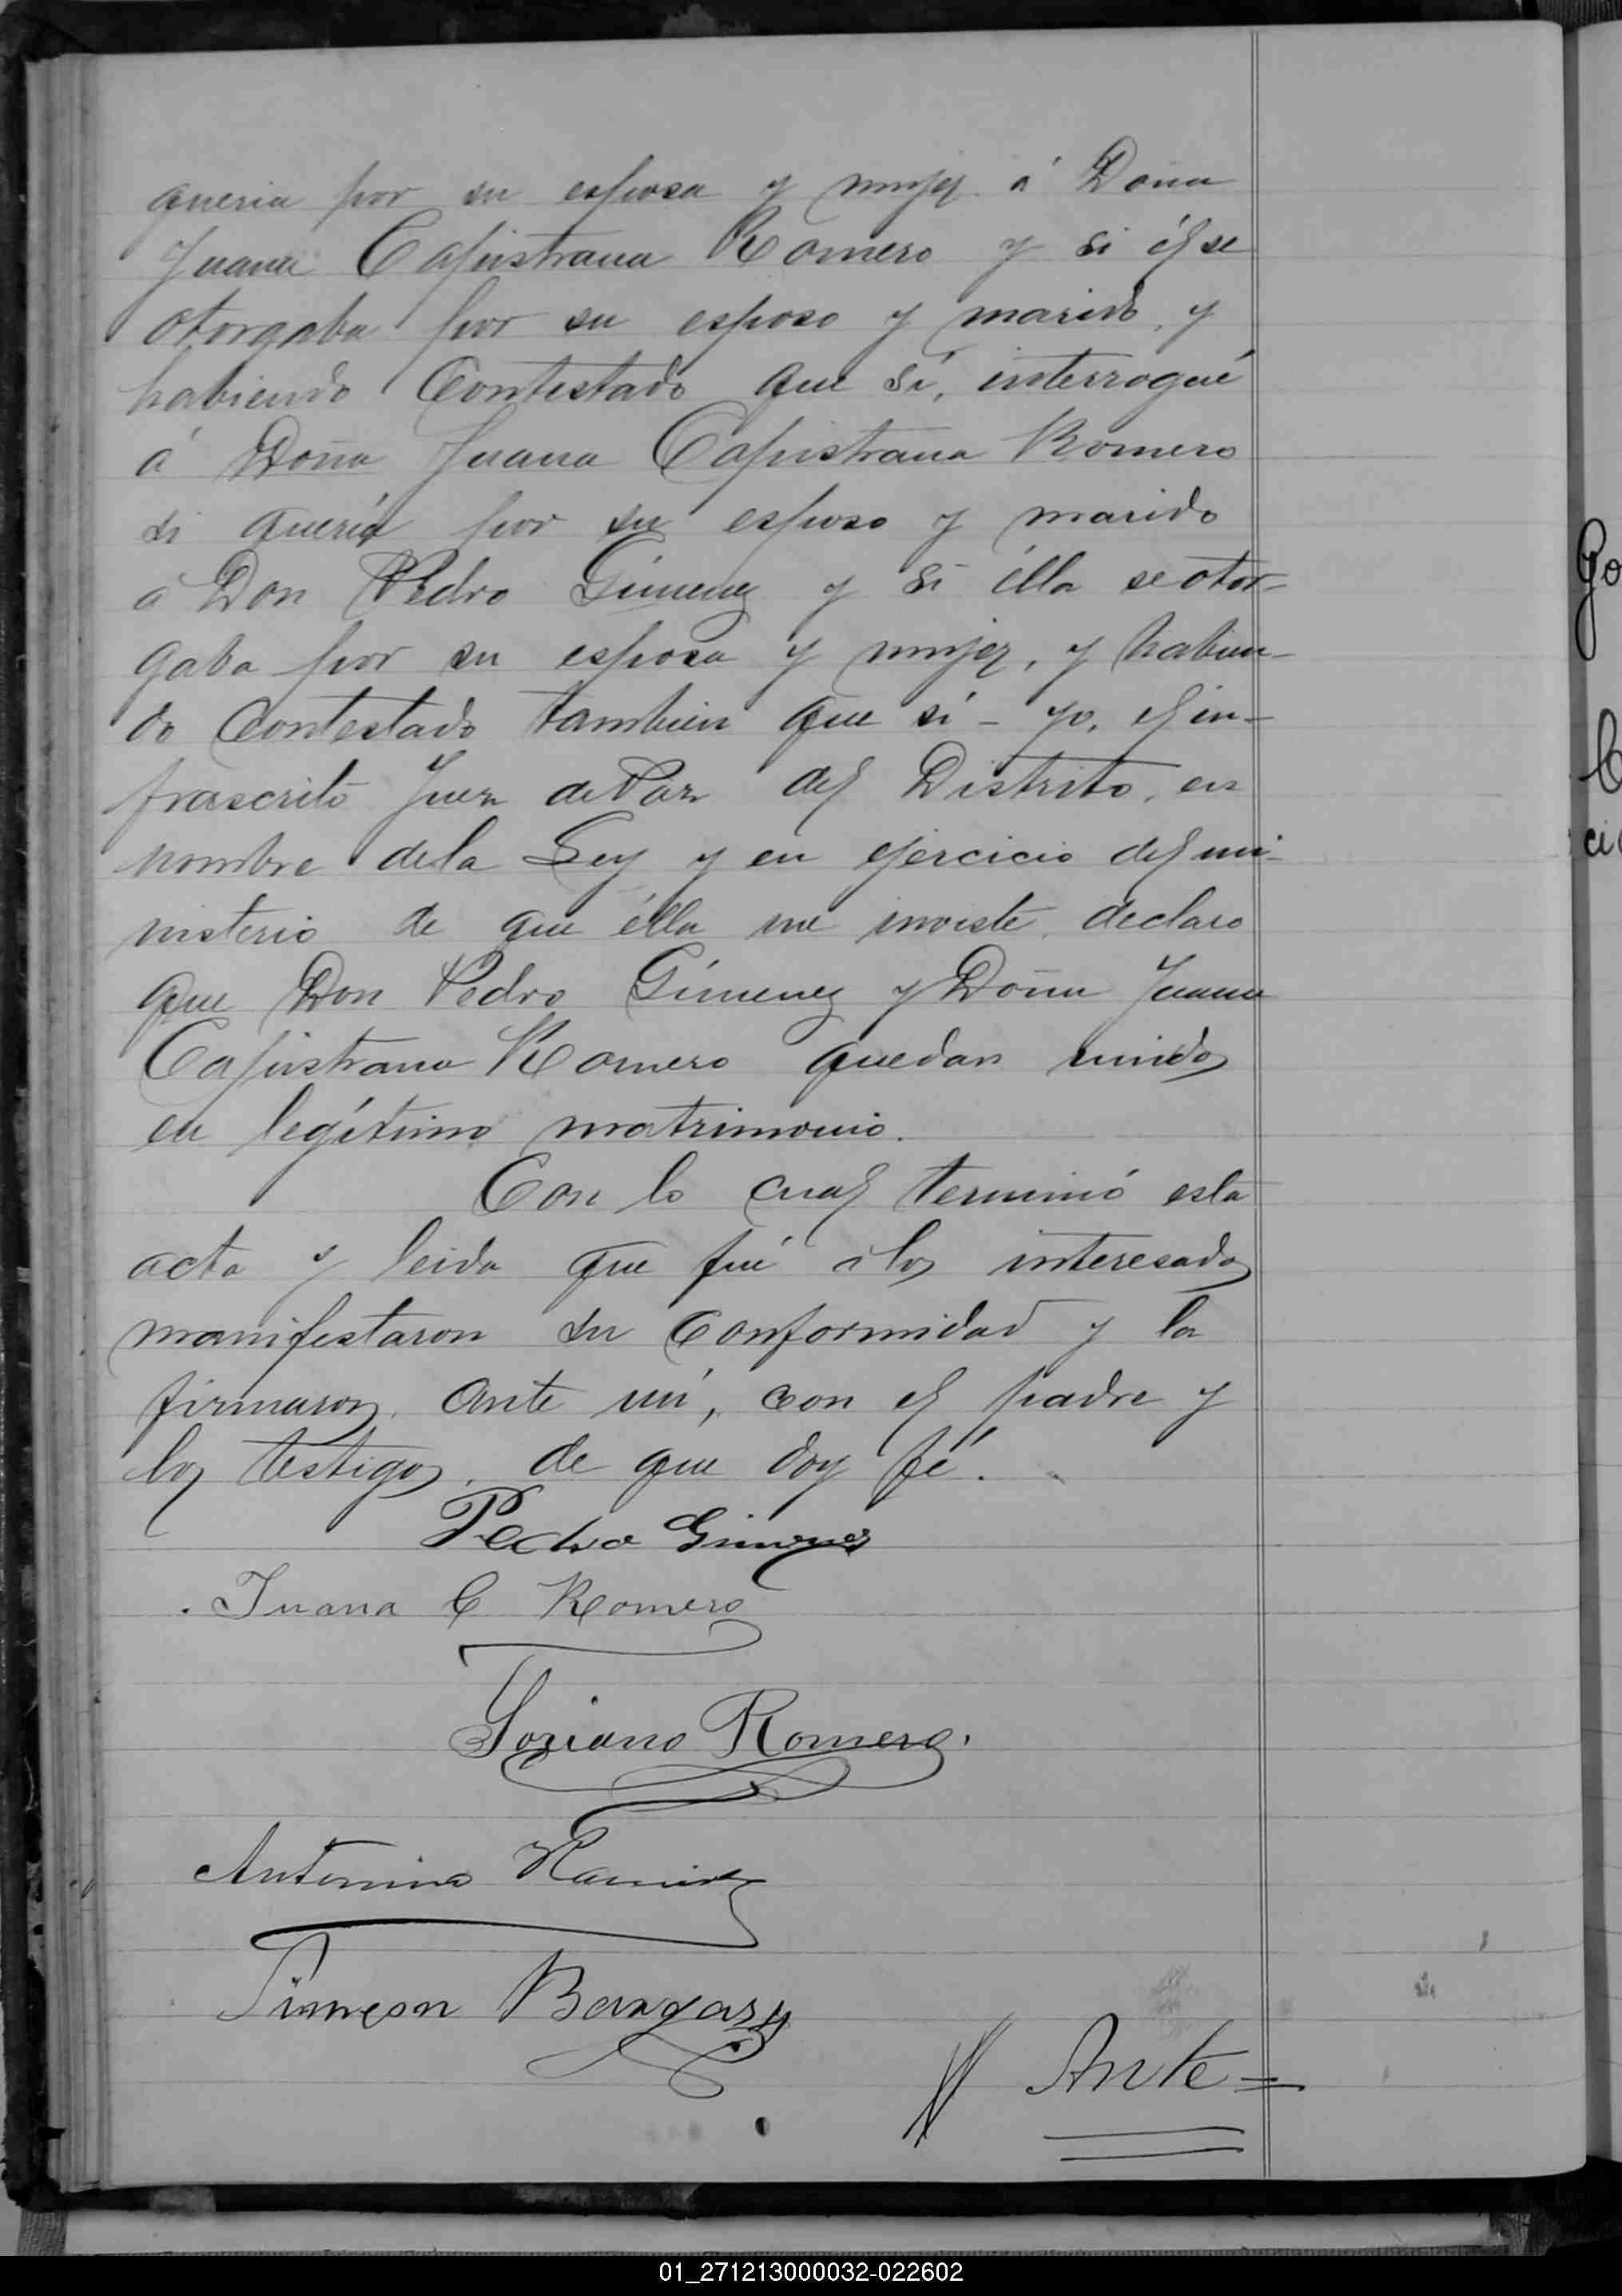 queria por su esposa y mujer á Doña
Juana Capistrana Romero y si él se
otorgaba por su esposo y marido, y
habiendo Contestado que sí, interrogué
á Doña Juana Capistrana Romero
si quería por su esposo y marido
á Don Pedro Gímenez y si élla se otor-
gaba por su esposa y mujer, y habien-
do Contestado tambien que sí - yo, el in-
frascrito Juez de Paz del Distrito, en
nombre de la Ley y en ejercicio del mi-
nisterio de que élla me inviste, declaro
que Don Pedro Gímenez y Doña Juana
Capistrana Romero quedan unidos
en legítimo matrimonio.
Con lo cual terminó esta
acta y leida que fué á los interesados
manifestaron su Conformidad y la
firmaron, ante mí, con el padre y
los testigos, de que doy fé.
Pedro Gimenez
Juana C Romero
Romero.
Antonino Ramirez
Simeon
Ante=
Go
C
ci
01_271213000032-022602